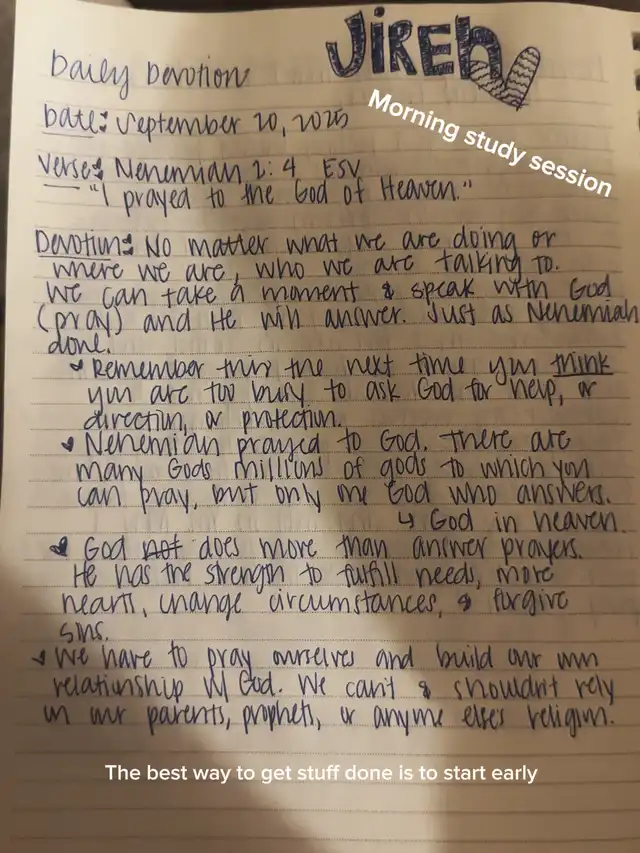 JIREh
Daily Devotion
Morning study session
Date: September 20, 2025
Verse: Nehemiah 2:4 ESV
"I prayed to the God of Heaven."
Devotion: No matter what we are doing or
where we are, who we are talking to.
We can take a moment & speak with God
(pray) and He will answer. Just as Nehemiah
done.
Remember this the next time you think
you are too busy to ask God for help, or
direction, or protection.
Nehemiah prayed to God. There are
many Gods millions of gods to which you
can pray, but only one God who answers.
↳ God in heaven.
God not does more than answer prayers.
He has the strength to fulfill needs, move
hearts, change circumstances, & forgive
sins.
We have to pray ourselves and build our own
relationship w/ God. We can't & shouldn't rely
on our parents, prophets, or anyone else's religion.
The best way to get stuff done is to start early